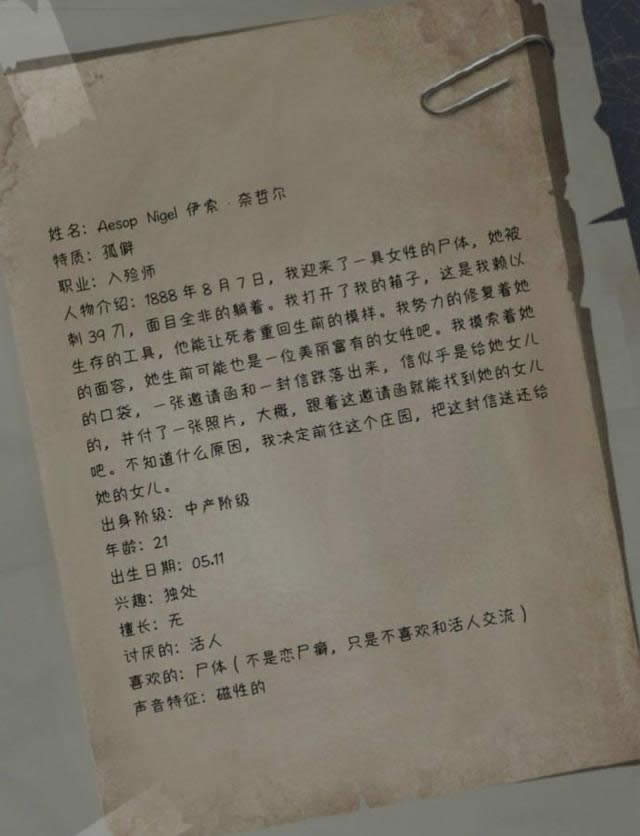 姓名：Aesop Nigel 伊索·奈哲尔
特质：孤僻
职业：入殓师
人物介绍：1888年8月7日，我迎来了一具女性的尸体，她被
刺39刀，面目全非的躺着。我打开了我的箱子，这是我赖以
生存的工具，他能让死者重回生前的模样。我努力的修复着她
的面容，她生前可能也是一位美丽富有的女性吧。我摸索着她
的口袋，一张邀请函和一封信跌落出来，信似乎是给她女儿
的，并付了一张照片，大概，跟着这邀请函就能找到她的女儿
吧。不知道什么原因，我决定前往这个庄园，把这封信送还给
她的女儿。
出身阶级：中产阶级
年龄：21
出生日期：05.11
兴趣：独处
擅长：无
讨厌的：活人
喜欢的：尸体（不是恋尸癖，只是不喜欢和活人交流）
声音特征：磁性的